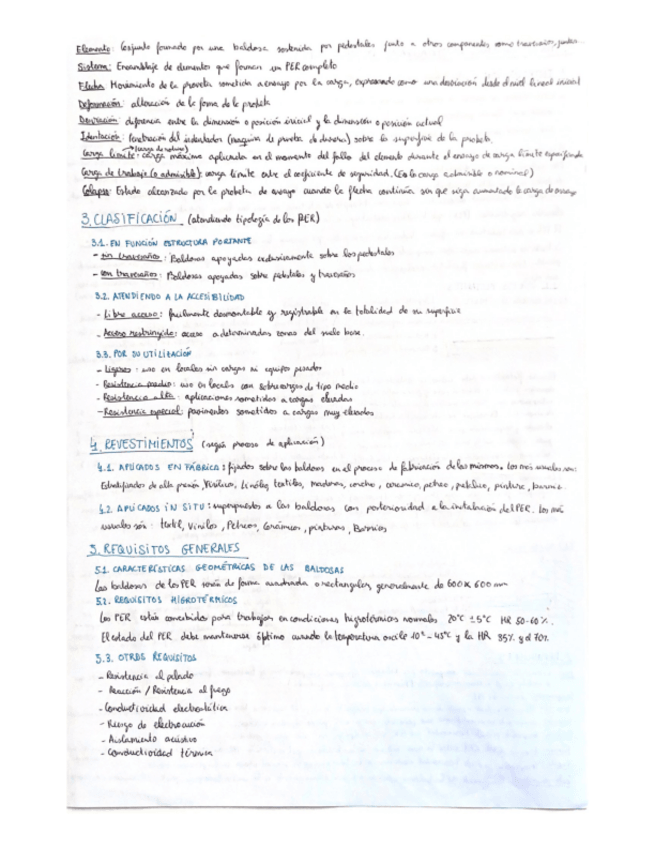 Elemento: Conjunto formado por una baldosa sostenida por pedestales junto a otros componentes como travesaños, juntas...
Sistema: Ensamblaje de elementos que forman un PER completo
Flecha: Movimiento de la probeta sometida a ensayo por la carga, expresando como una desviación desde el nivel lineal inicial
Deformación: alteración de la forma de la probeta
Desviación: diferencia entre la dimensión o posición inicial y la dimensión o posición actual
Identación: Penetración del indentador (maquina de prueba de dureza) sobre la superficie de la probeta.
(carga de rotura)
Carga límite: carga máxima aplicada en el momento del fallo del elemento durante el ensayo de carga límite especificado
Carga de trabajo (o admisible): carga límite entre el coeficiente de seguridad. (Es la carga admisible o nominal)
Colapso: Estado alcanzado por la probeta de ensayo cuando la flecha continúa sin que siga aumentado la carga de ensayo
3. CLASIFICACIÓN (atendiendo tipología de los PER)
3.1. EN FUNCIÓN ESTRUCTURA PORTANTE
- sin travesaños: Baldosas apoyadas exclusivamente sobre los pedestales
- con travesaños: Baldosas apoyadas sobre pedestales y travesaños
3.2. ATENDIENDO A LA ACCESIBILIDAD
- Libre acceso: facilmente desmontable y registrable en la totalidad de su superficie
- Acceso restringido: acceso a determinadas zonas del suelo base.
3.3. POR SU UTILIZACIÓN
- Ligeros: uso en locales sin cargas ni equipos pesados
- Resistencia media: uso en locales con sobrecargas de tipo medio
- Resistencia alta: aplicaciones sometidas a cargas elevadas
- Resistencia especial: pavimentos sometidos a cargas muy elevadas
4. REVESTIMIENTOS (según proceso de aplicación)
4.1. APLICADOS EN FÁBRICA: fijados sobre las baldosas en el proceso de fabricación de las mismas. Los más usuales son:
Estratificados de alta presión, Vinílico, Linóleo, textiles, maderas, corcho, ceramico, petreo, metálico, pintura, barniz.
4.2. APLICADOS IN SITU: superpuestos a las baldosas con posterioridad a la instalación del PER. Los más
usuales son: textil, Vinilos, Pétreos, Cerámicos, pinturas, Barnices
5. REQUISITOS GENERALES
5.1. CARACTERÍSTICAS GEOMÉTRICAS DE LAS BALDOSAS
Las baldosas de los PER serán de forma cuadrada o rectangular, generalmente de 600 x 600 mm
5.2. REQUISITOS HIGROTÉRMICOS
Los PER están concebidos para trabajar en condiciones higrotérmicas normales 20ºC ±5ºC HR 50-60%.
El estado del PER debe mantenerse óptimo cuando la temperatura oscile 10º-45ºC y la HR 35% y el 70%.
5.3. OTROS REQUISITOS
- Resistencia al pelado
- Reacción / Resistencia al fuego
- Conductividad electrostática
- Riesgo de electrocución
- Aislamiento acústico
- Conductividad térmica